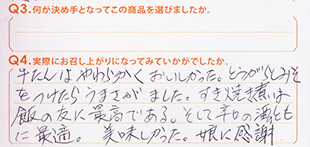 Q3.何が決め手となってこの商品を選びましたか。
Q4.実際にお召し上がりになってみていかがでしたか。
牛たんはやわらかくおいしかった。とうがらしみそ
をつけたらうまさがました。すき焼煮は
飯の友に最高である。そして辛口の酒とも
に最適。 美味しかった。娘に感謝